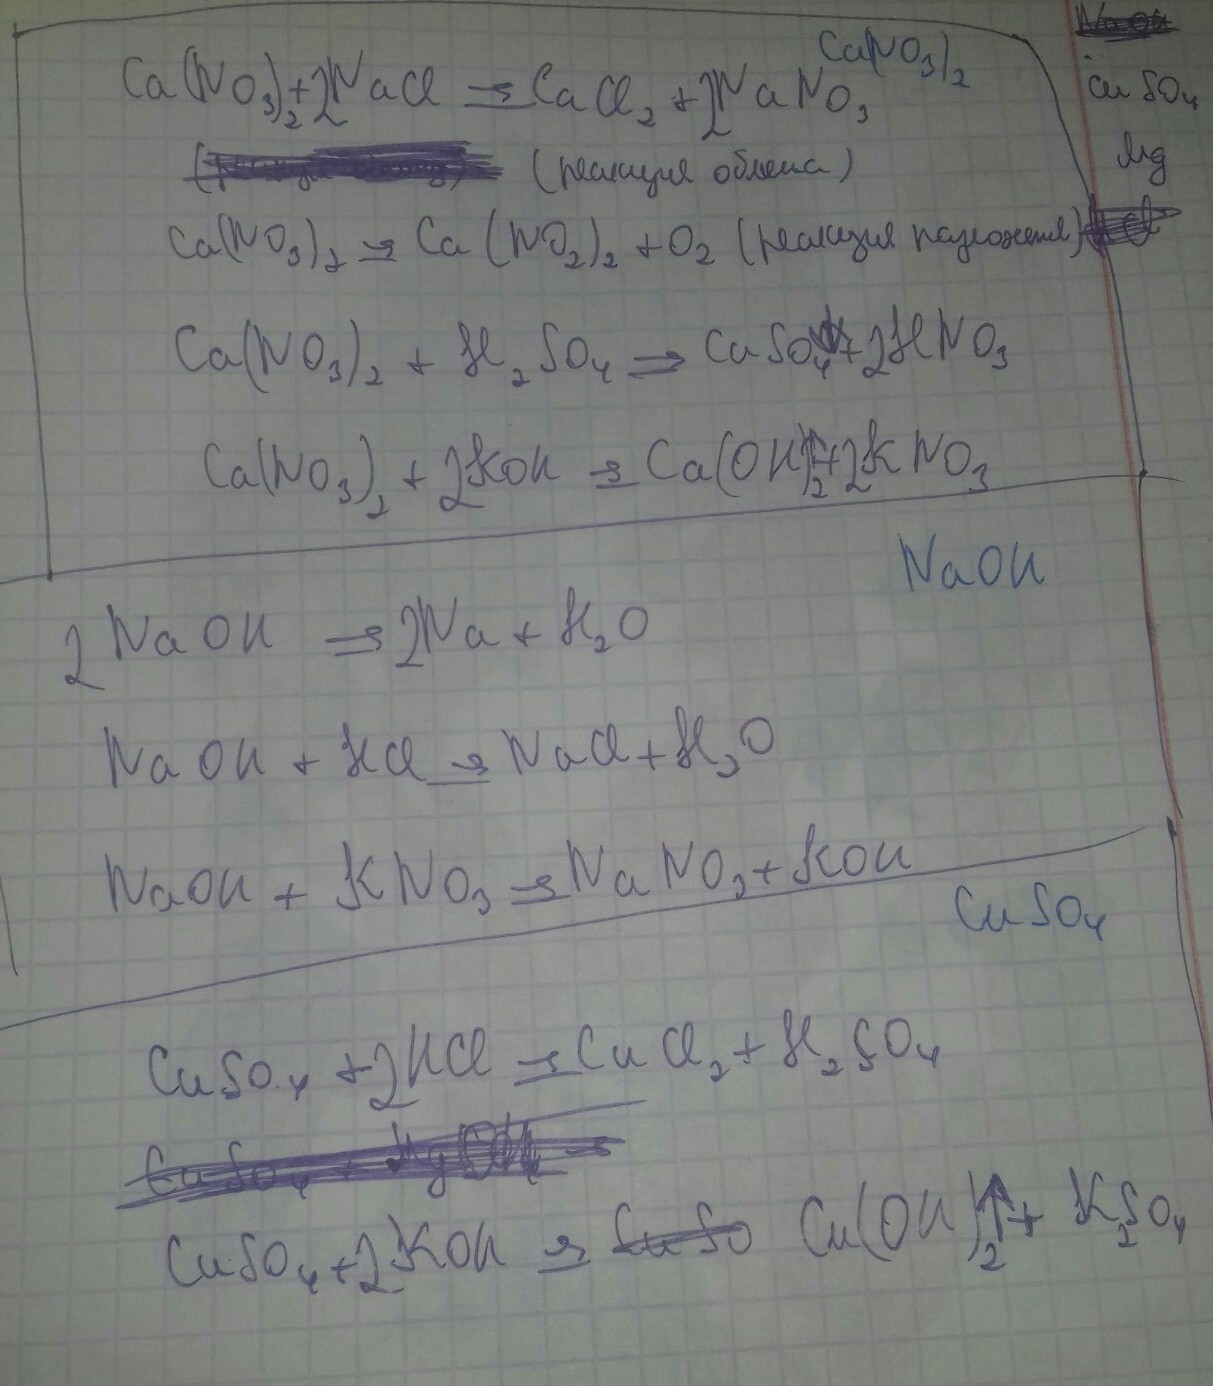 Ca(NO₃)₂
Ca(NO₃)₂+2NaCl ⇒ CaCl₂ + 2NaNO₃
(реакция обмена)
Ca(NO₃)₂ ⇒ Ca(NO₂)₂ + O₂ (реакция разложения)
Ca(NO₃)₂ + H₂SO₄ ⇒ CaSO₄ + 2HNO₃
Ca(NO₃)₂ + 2KOH ⇒ Ca(OH)₂↑ + 2KNO₃
CuSO₄
Mg
NaOH
2NaOH ⇒ 2Na + H₂O
NaOH + HCl ⇒ NaCl + H₂O
NaOH + KNO₃ ⇒ NaNO₃ + KOH
CuSO₄
CuSO₄ + 2HCl ⇒ CuCl₂ + H₂SO₄
CuSO₄ + 2KOH ⇒ Cu(OH)₂↑ + K₂SO₄